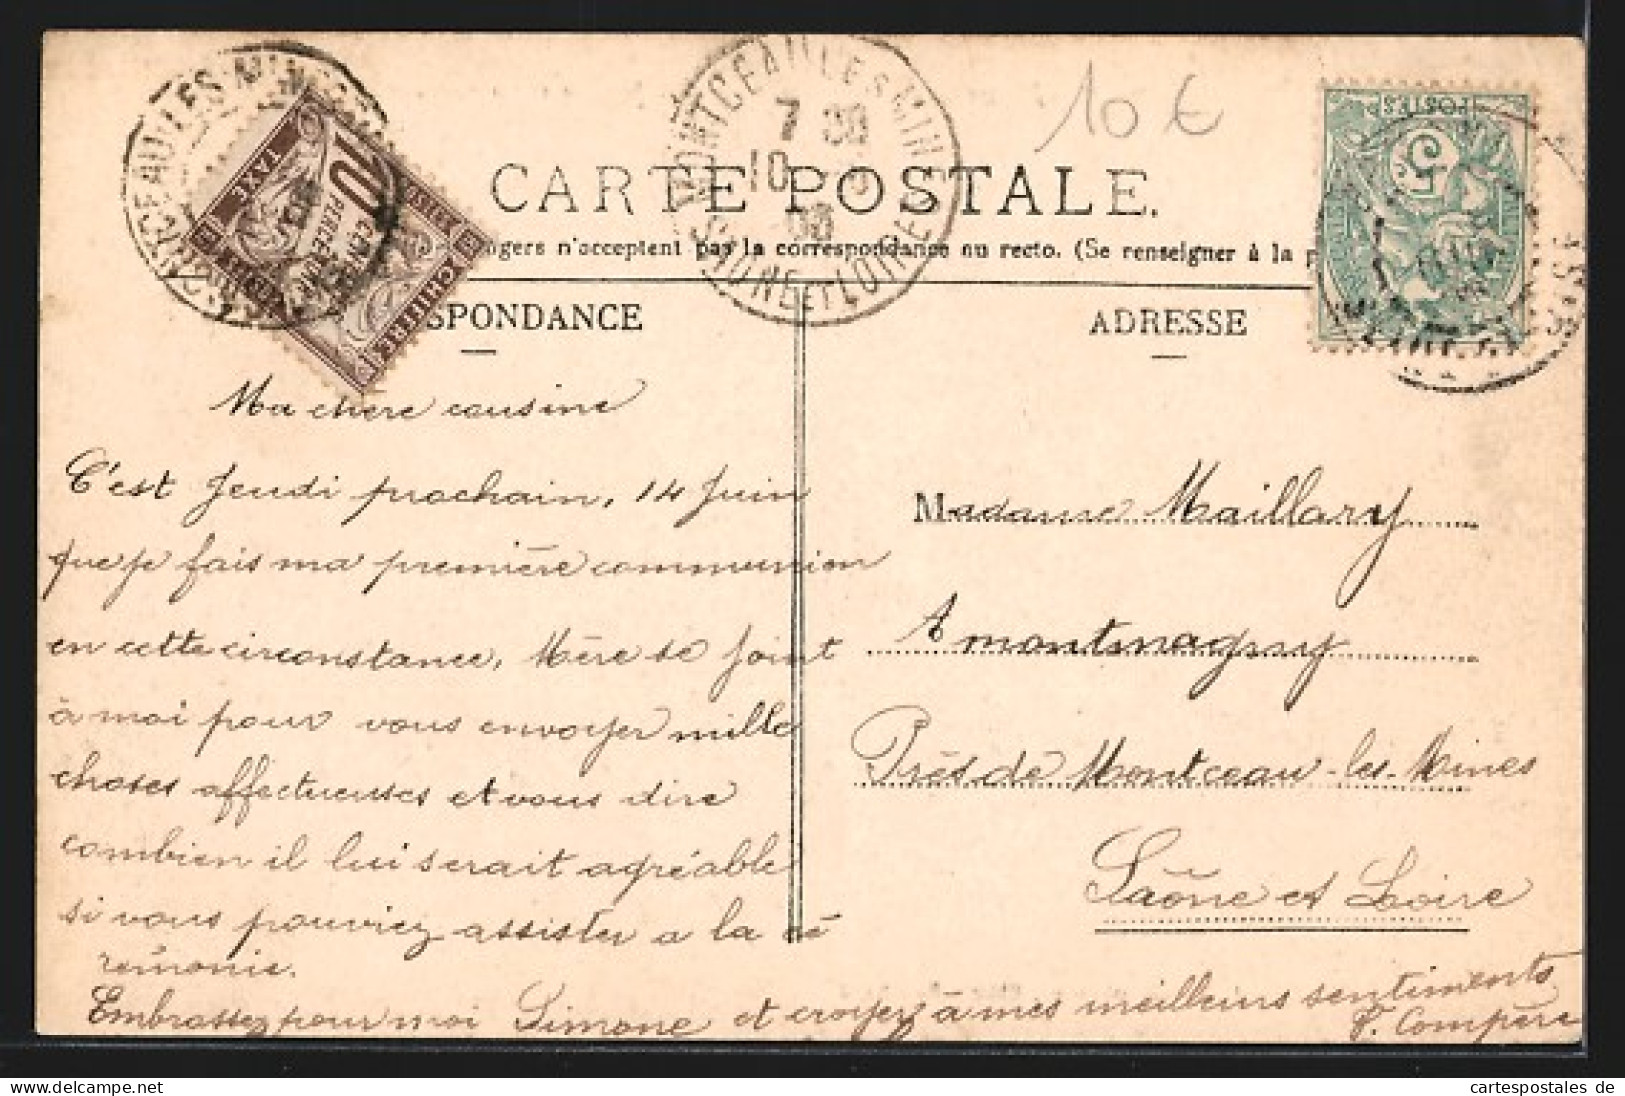 MONTCEAU LES MINES
7 30
10
SAONE ET LOIRE
10 €
POSTES
5
10
CENTIMES
A PERCEVOIR
TAXE
CHIFFRE
CARTE POSTALE.
ngers n'acceptent pas la correspondance au recto. (Se renseigner à la
SPONDANCE
ADRESSE
Ma chere cousine
C'est Jeudi prochain, 14 Juin
que je fais ma première communion
en cette circonstance, Mère se joint
à moi pour vous envoyer mille
choses affectueuses et vous dire
combien il lui serait agréable
si vous pouviez assister a la cé
rémonie.
Embrassez pour moi Simone et croyez à mes meilleurs sentiments
P. Compère
Madame Maillary
A montmagny
Près de Montceau-les-Mines
Saône et Loire
cartespostales de